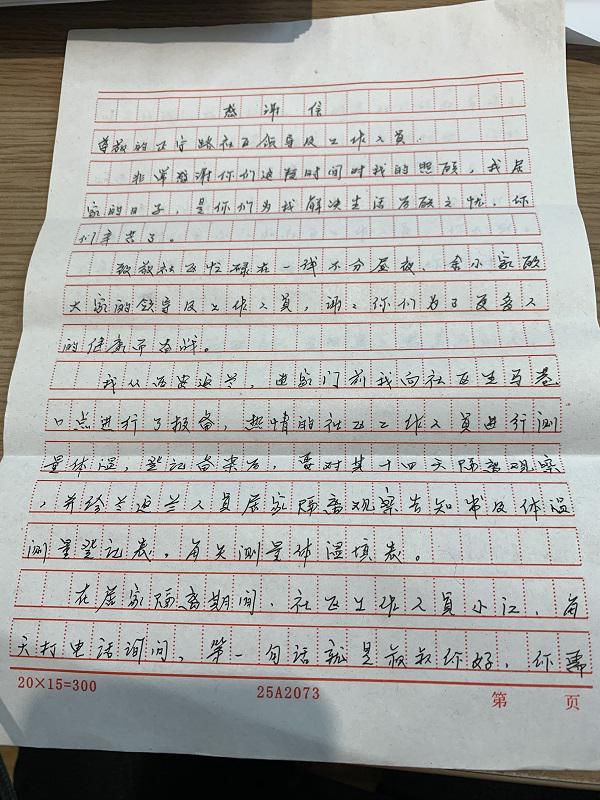 感谢信
尊敬的正宁路社区领导及工作人员.
非常感谢你们这段时间对我的照顾，我居
家的日子，是你们为我解决生活后顾之忧，你
们辛苦了。
致敬社区忙碌在一线不分昼夜、舍小家顾
大家的领导及工作人员，谢谢你们为了更多人
的健康而奋战。
我从西安返兰，进家门前我向社区生马巷
口点进行了报备，热情的社区工作人员进行测
量体温，登记备案后，要对其十四天隔离观察
，并给兰返兰人员居家隔离观察告知书及体温
测量登记表，每天测量体温填表。
在居家隔离期间，社区工作人员小江，每
天打电话询问，第一句话就是叔叔你好，你需
20×15=300 25A2073 第 页